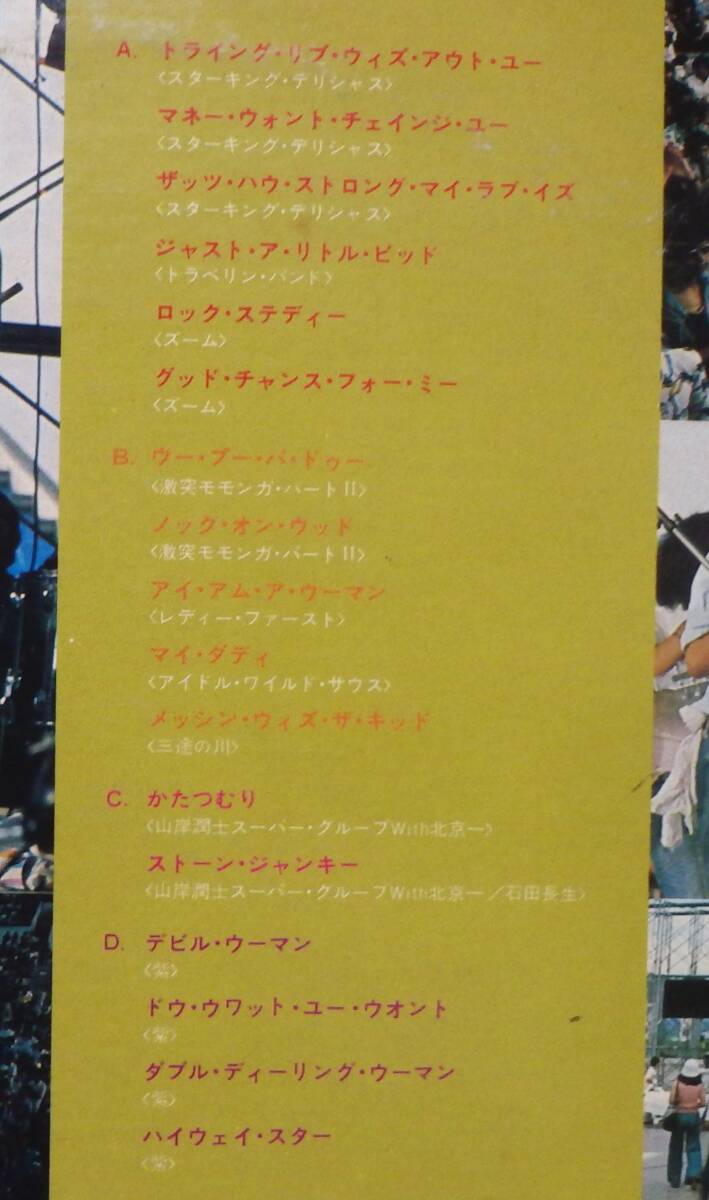 A. トライング・リブ・ウィズ・アウト・ユー
〈スターキング・デリシャス〉
マネー・ウォント・チェインジ・ユー
〈スターキング・デリシャス〉
ザッツ・ハウ・ストロング・マイ・ラブ・イズ
〈スターキング・デリシャス〉
ジャスト・ア・リトル・ビッド
〈トラベリン・バンド〉
ロック・ステディー
〈ズーム〉
グッド・チャンス・フォー・ミー
〈ズーム〉
B. ウー・プー・パ・ドゥー
〈激突モモンガ・パートII〉
ノック・オン・ウッド
〈激突モモンガ・パートII〉
アイ・アム・ア・ウーマン
〈レディー・ファースト〉
マイ・ダディ
〈アイドル・ワイルド・サウス〉
メッシン・ウィズ・ザ・キッド
〈三途の川〉
C. かたつむり
〈山岸潤士スーパー・グループWith北京一〉
ストーン・ジャンキー
〈山岸潤士スーパー・グループWith北京一／石田長生〉
D. デビル・ウーマン
〈紫〉
ドゥ・ウワット・ユー・ウオント
〈紫〉
ダブル・ディーリング・ウーマン
〈紫〉
ハイウェイ・スター
〈紫〉